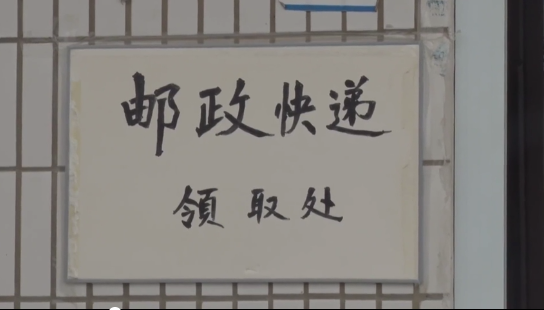 邮政快递
領取处